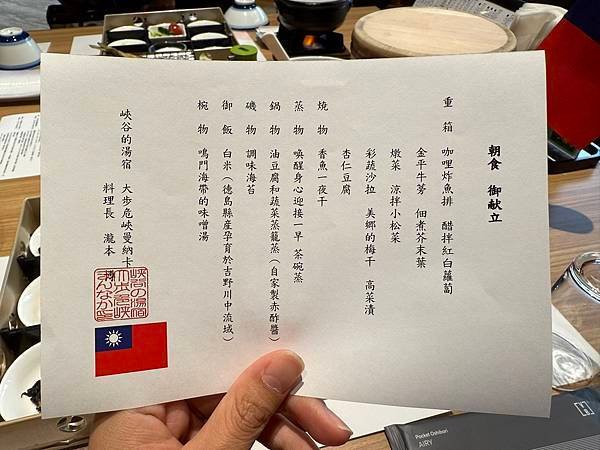 朝食　御献立
重　箱　咖哩炸魚排　醋拌紅白蘿蔔
金平牛蒡　佃煮芥末葉
燉菜　涼拌小松菜
彩蔬沙拉　美郷的梅干　高菜漬
杏仁豆腐
燒　物　香魚一夜干
蒸　物　喚醒身心迎接一早　茶碗蒸
鍋　物　油豆腐和蔬菜蒸籠蒸（自家製赤酢醬）
磯　物　調味海苔
御　飯　白米（德島縣産孕育於吉野川中流域）
椀　物　鳴門海帶的味噌湯
峽谷的湯宿　大步危峽曼納卡
料理長　瀧本
峡谷の湯宿
大歩危峡
まんなか
Pocket Outdoor
AIRY